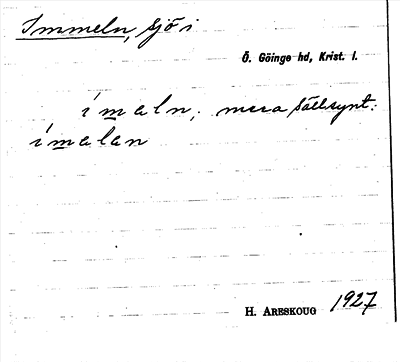 Immeln, sjö i
Ö. Göinge hd, Krist. l.
ímaln; mera sällsynt:
ímalan
H. ARESKOUG 1927